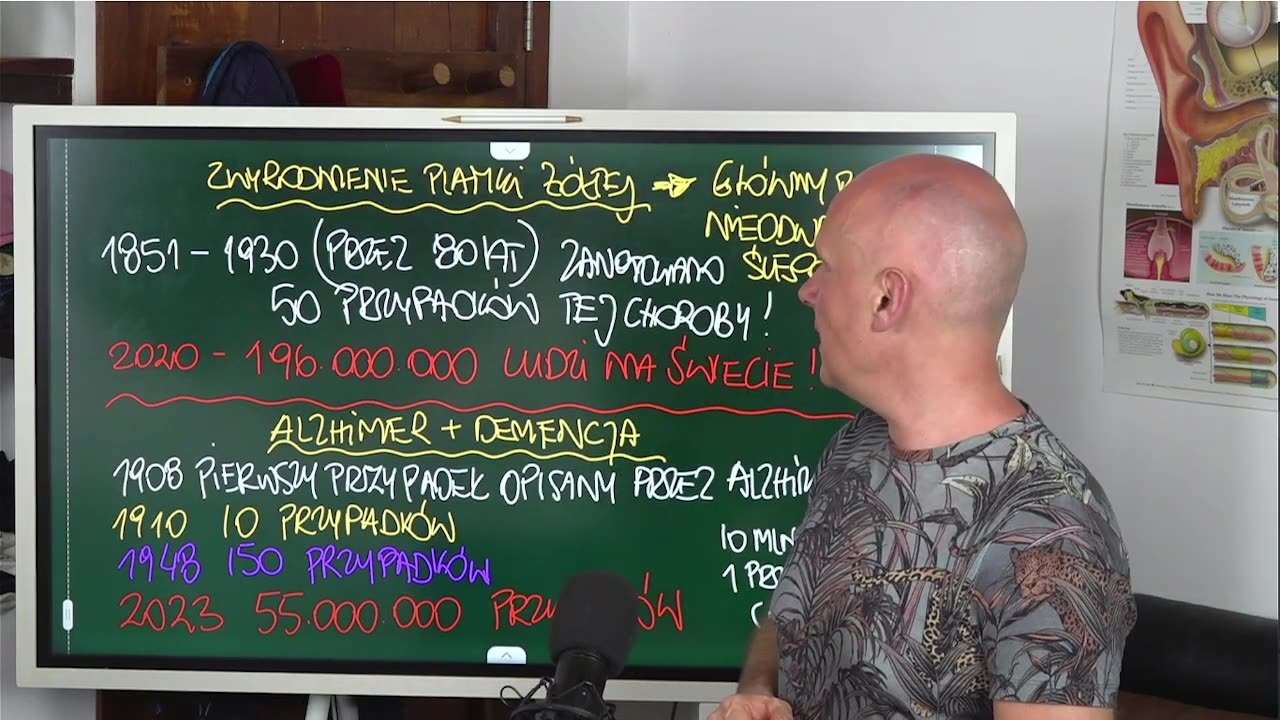 ZWYRODNIENIE PLAMKI ŻÓŁTEJ → GŁÓWNY
NIEODW
ŚLEPO
1851 - 1930 (PRZEZ 80 LAT) ZANOTOWANO
50 PRZYPADKÓW TEJ CHOROBY!
2020 - 196.000.000 LUDZI NA ŚWIECIE!
ALZHIMER + DEMENCJA
1908 PIERWSZY PRZYPADEK OPISANY PRZEZ ALZHIM
1910 10 PRZYPADKÓW
10 MLN
1948 150 PRZYPADKÓW
2023 55.000.000